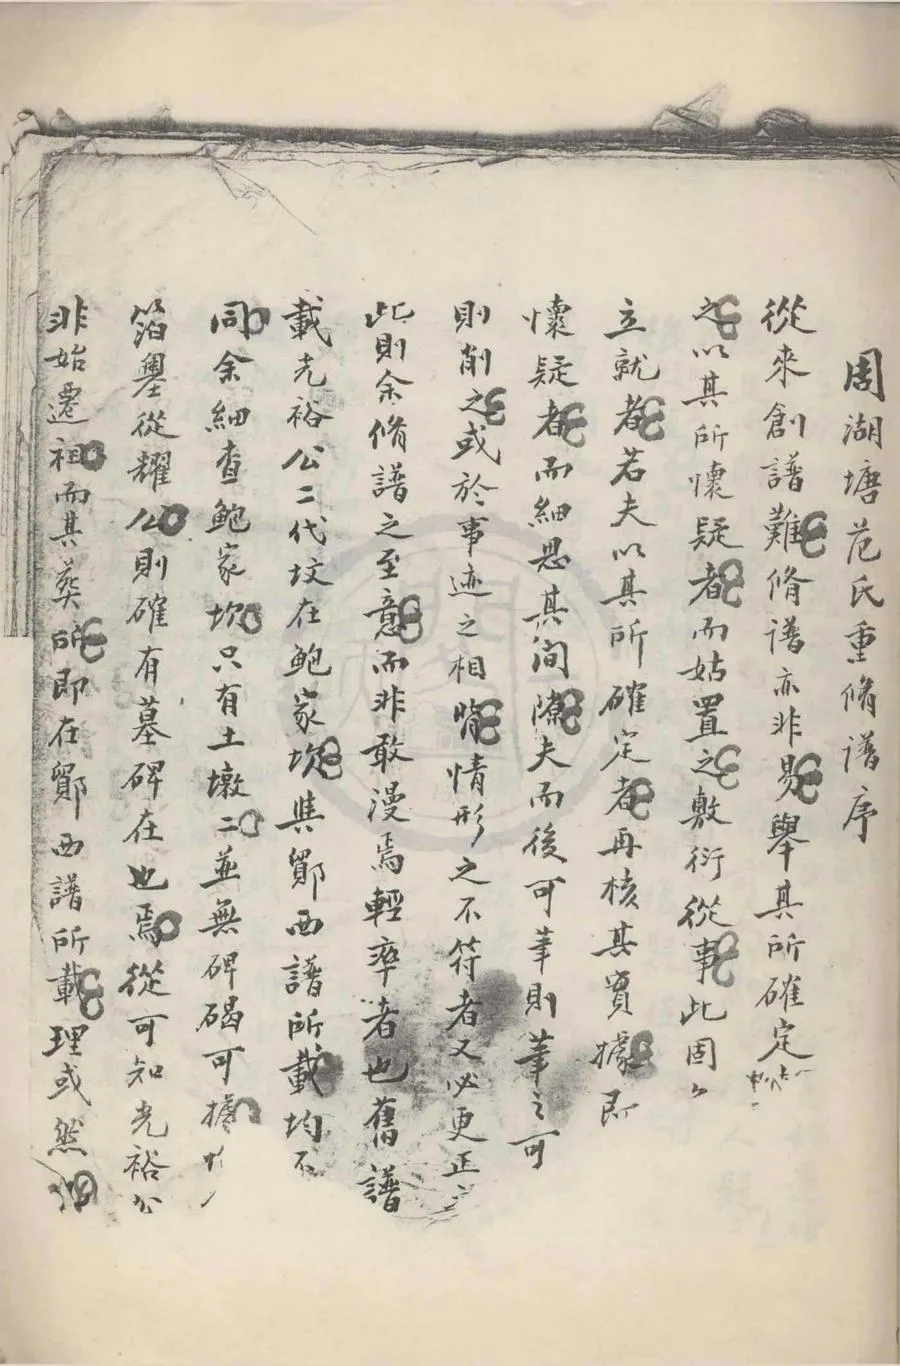 周湖塘范氏重脩譜序
從來創譜難脩譜亦非易舉其所確定
之以其所懷疑者而姑置之敷衍從事此固
立就者若夫以其所確定者再核其實據即
懷疑者而細思其間隙夫而後可筆則筆之可
則削之或於事迹之相啎情形之不符者又必更正
此則余脩譜之至意而非敢漫焉輕率者也舊譜
載光裕公二代坟在鮑家坎與鄮西譜所載均不
同余細查鮑家坎只有土墩二並無碑碣可據
箔墨從耀公則確有墓碑在也焉從可知光裕公
非始遷祖而其葬所即在鄮西譜所載理或然